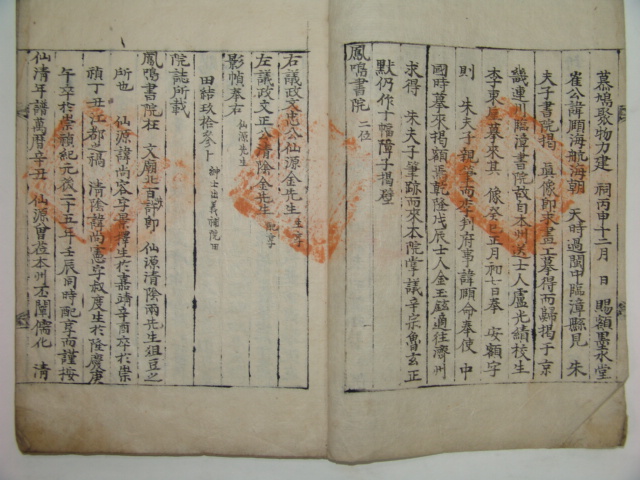 慕鳩聚物力建 祠丙申十二月 日 賜額墨水堂
崔公諱 海航海朝 天時過閩中臨漳縣見 朱
夫子書院揭 眞像卽求畫工摹得而歸揭于京
畿連川臨漳書院故自本州送士人盧光績校生
李東星摹來其 像癸巳正月初七日奉 安額字
則 朱夫子親筆而李判府事諱頤命奉使 中
國時摹來揭額焉乾隆戊辰士人金玉鉉適往濟州
求得 朱夫子筆跡而來本院掌議辛宗魯玄正
默仍作十幅障子揭壁
鳳鳴書院 二位
右議政文忠公仙源金先生 主享
左議政文正公清陰金先生 配享
影幀奉右 仙源先生
田結玖拾參卜 紳士出義補院田
院誌所載
鳳鳴書院在 文廟北百許卽 仙源清陰兩先生俎豆之
所也 仙源諱尚容字景擇生於嘉靖辛酉卒於崇
禎丁丑江都之禍 清陰諱尚憲字叔度生於隆慶庚
午卒於崇禎紀元後二十五年壬辰同時配享而謹按
仙清年譜萬曆辛丑 仙源曾莅本州丕闡儒化 清